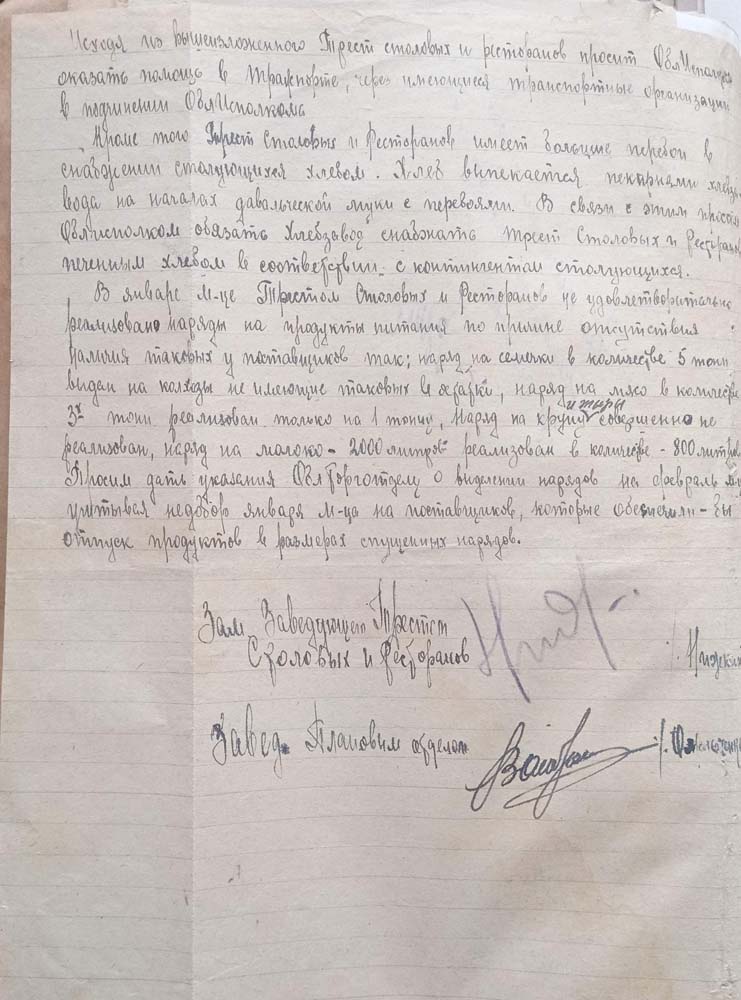 Исходя из вышеизложенного Трест столовых и рестованов просит ОблИсполком
оказать помощь в транспорте, через имеющиеся транспортные организации
в подчинении ОблИсполкома
Кроме того Трест Столовых и Ресторанов имеет большие перебои в
снабжении столующихся хлебом. Хлеб выпекается пекарнями хлебза-
вода на началах давальческой муки с перебоями. В связи с этим просим
Облисполком обязать "Хлебзавод" снабжать трест Столовых и Ресторанов
печенным хлебом в соответствии с контингентом столующихся.
В январе м-це Трестом Столовых и Ресторанов не удовлетворительно
реализовано наряды на продукты питания по причине отсутствия
наличия таковых у поставщиков так; наряд на семечки в количестве 5 тонн
выдан на колхозы не имеющие таковых в , наряд на мясо в количестве
3х тонн реализован только на 1 тонну, наряд на крупу и жиры совершенно не
реализован, наряд на молоко - 2000 литров реализован в количестве - 800 литров
Просим дать указания ОблТорготделу о выделении нарядов на февраль м-ц
учитывая недобор января м-ца на поставщиков, которые обеспечили-бы
отпуск продуктов в размерах спущенных нарядов.
Зам. Заведующего Трестом
Столовых и Ресторанов
Завед. Плановым отделом